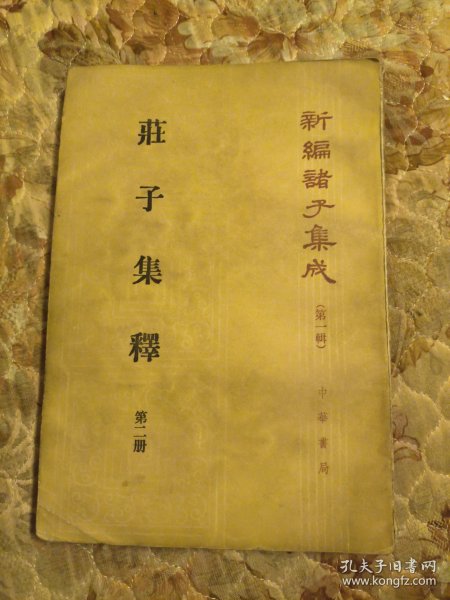 新編諸子集成
（第一輯）
中華書局
莊子集釋
第二册
孔夫子旧书网
www.kongfz.com